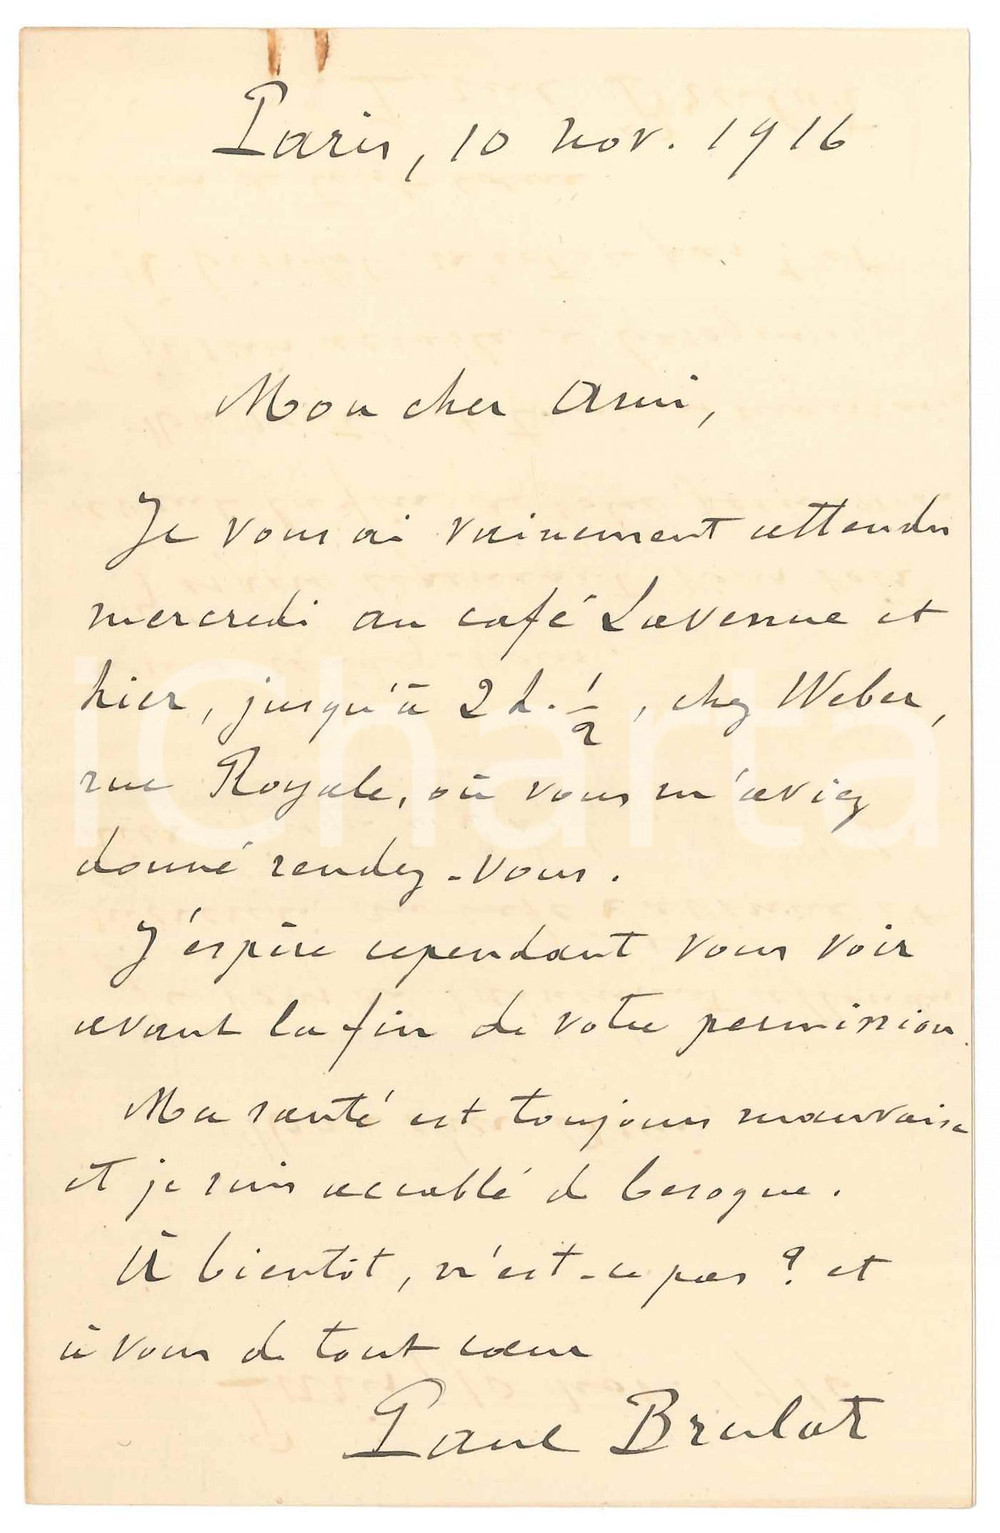 Paris, 10 nov. 1916
Mon cher Ami,
Je vous ai vainement attendu
mercredi au café Lavenue et
hier, jusqu'à 2 h. 1/2, chez Weber,
rue Royale, où vous m'aviez
donné rendez-vous.
J'espère cependant vous voir
avant la fin de votre permission.
Ma santé est toujours mauvaise
et je suis accablé de besogne.
À bientôt, n'est-ce pas ? et
à vous de tout cœur
Paul Brulat
iCharta